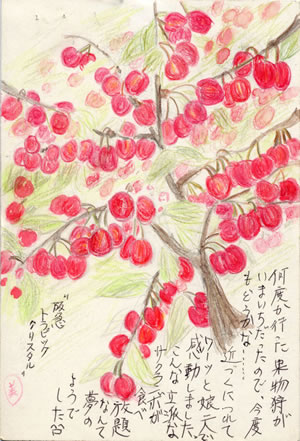 何度か行った果物狩が
いまいちだったので、今度
もどうかな……
近づくにつれて
ワッと娘と二人
感動しました
こんな立派な
サクランボが
食べ放題
なんて
夢の
ようで
した
"阪急
トラピック
クリスタル"